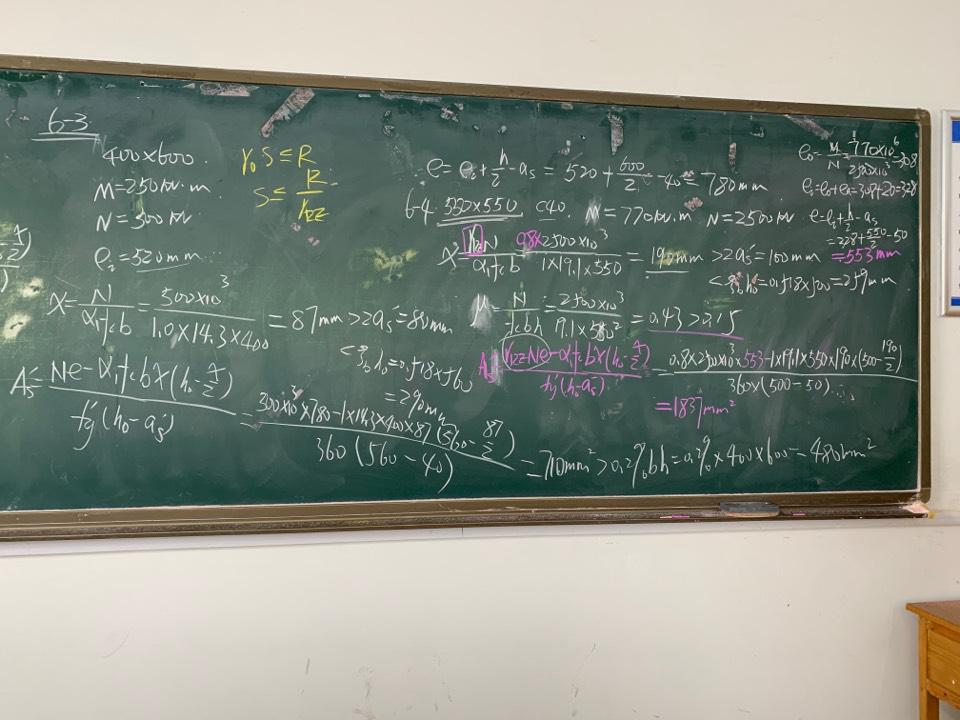 6-3
400×600.
M=250kN·m
N=500kN
e₂=520mm
γ₀S≤R
S≤R/γRE
x=N/α₁fcb=500×10³/1.0×14.3×400=87mm>2as'=80mm
<ξb h₀=0.518×560
=290mm
As'=Ne-α₁fcbx(h₀-x/2)/fy'(h₀-as')
=500×10³×780-1×14.3×400×87(560-87/2)/360(560-40)=710mm²>0.2%bh=0.2%×400×600=480mm²
e=e₂+h/2-as=520+600/2-40=780mm
6-4 550×550 C40. M=770kN·m N=2500kN
x=γRE N/α₁fcb 0.8×2500×10³/1×19.1×550=190mm>2as'=100mm
<ξb h₀=0.518×500=259mm
μ=N/fcbh=2500×10³/19.1×550²=0.43>0.15
As'=γRE Ne-α₁fcbx(h₀-x/2)/fy'(h₀-as')=0.8×2500×10³×553-1×19.1×550×190×(500-190/2)/360×(500-50)
=1837mm²
e₀=M/N=770×10⁶/2500×10³=308
e₂=e₀+ea=308+20=328
e=e₂+h/2-as
=328+550/2-50
=553mm